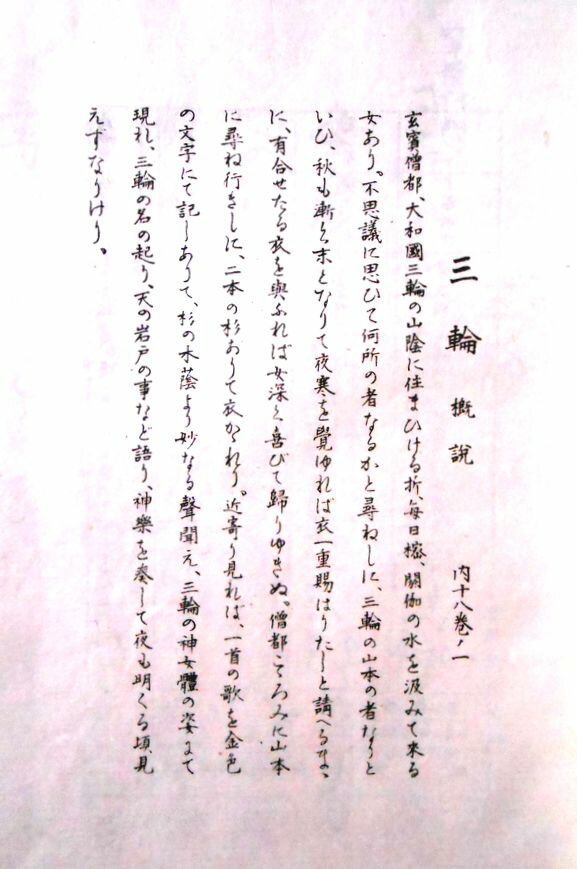 三輪 概説 内十八巻ノ一
玄賓僧都、大和國三輪の山陰に住まひける折、毎日樒、閼伽の水を汲みて來る
女あり。不思議に思ひて何所の者なるかと尋ねしに、三輪の山本の者なりと
いひ、秋も漸く末となりて夜寒を覺ゆれば衣一重賜はりたしと請へるまゝ
に、有合せたる衣を與ふれば女深く喜びて歸りゆきぬ。僧都こゝろみに山本
に尋ね行きしに、二本の杉ありて衣かゝれり。近寄り見れば、一首の歌を金色
の文字にて記しありて、杉の木蔭より妙なる聲聞え、三輪の神女體の姿にて
現れ、三輪の名の起り、天の岩戸の事など語り、神樂を奏して夜も明くる頃見
えずなりけり。